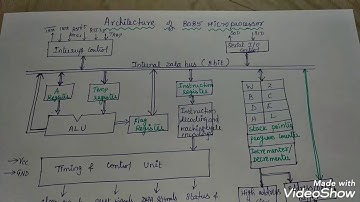 Architecture of 8085 Microprocessor
INTR
INTA
TRAP
SID
SOD
Interrupt Control
Serial I/O
Control
Internal Data bus (8bit)
A
Register
Temp
Register
Flag
Register
ALU
Instruction
Register
Instruction
decoding and
machine cycle
encoding
W Z
B C
D E
H L
Stack pointer
program counter
Incrementer/
Decrementer
Vcc
GND
Timing & Control Unit
Status &
High address
Made with
VideoShow